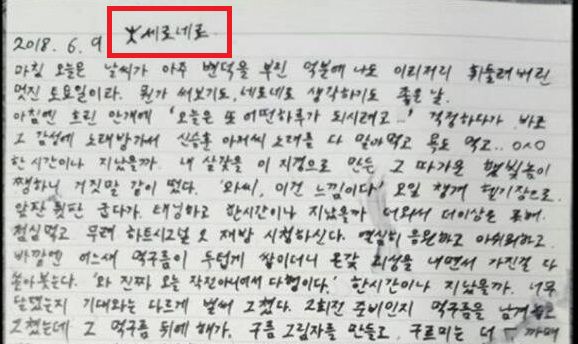 2018. 6. 9 大세로네로
마침 오늘은 날씨가 아주 변덕을 부린 덕분에 나도 이리저리 휘둘려버린
멋진 토요일이라. 뭔가 써보기도, 네로네로 생각하기도 좋은 날.
아침엔 흐린 안개에 '오늘은 또 어떤하루가 되시려고...' 걱정하다가 바로
그 감성에 노래방가서 신승훈 아저씨 노래를 다 말아먹고 욕도 먹고.. ㅇㅅㅇ
한 시간이나 지났을까. 내 살갗을 이 지경으로 만든 그 따가운 햇빛놈이
쨍하니 거짓말 같이 떴다. '와씨, 이건 느낌이다' 오일 챙겨 헬기장으로.
앞판 뒷판 굽다가. 태닝하고 한시간이나 지났을까 더워서 더이상은 못해.
점심먹고 무려 하트시그널 2 재방 시청하신다. 열심히 응원하고 아쉬워하고.
바깥엔 어느새 먹구름이 두텁게 쌓이더니 온갖 괴성을 내면서 가진걸 다
쏟아붓는다. '와 진짜 오늘 작전아니어서 다행이다.' 한시간이나 지났을까. 너무
달렸는지 기대와는 다르게 벌써 그쳤다. 2회전 준비인지 먹구름을 남겨놓고
그쳤는데 그 먹구름 뒤에 해가. 구름 그림자를 만들고, 구르미는 더